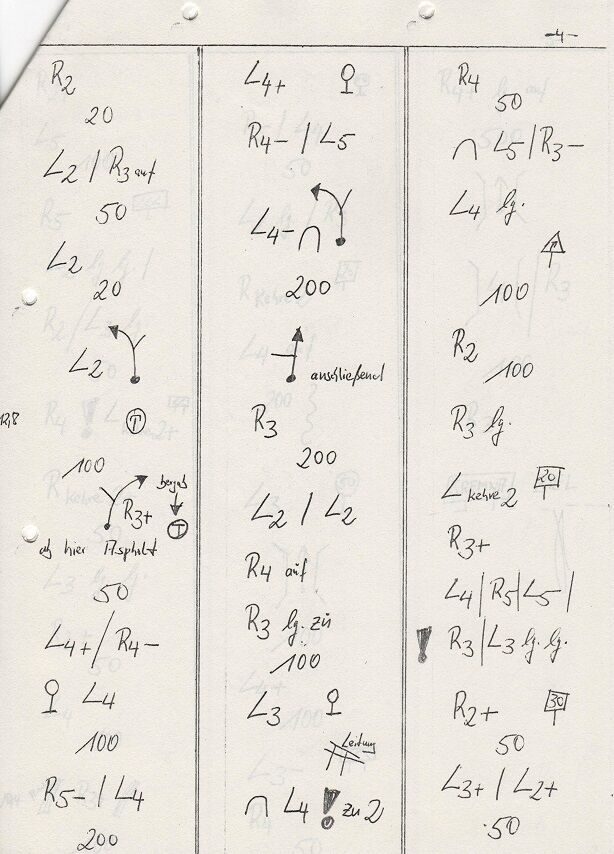 -4-
R2
20
L2 / R3 auf
50
L2
20
L2
T
100
R3+ bergab
T
ab hier Asphalt
50
L4+/R4-
L4
100
R5- / L4
200
L4+
R4- / L5
L4- ∩
200
anschließend
R3
200
L2 / L2
R4 auf
R3 lg. zu
100
L3
Leitung
∩ L4 ! zu 2
R4
50
∩ L5/R3-
L4 lg.
100
R2
100
R3 lg.
L kehre 2 20
R3+
L4/R5/L5/
! R3/L3 lg. lg.
R2+ 30
50
L3+ / L2+
50